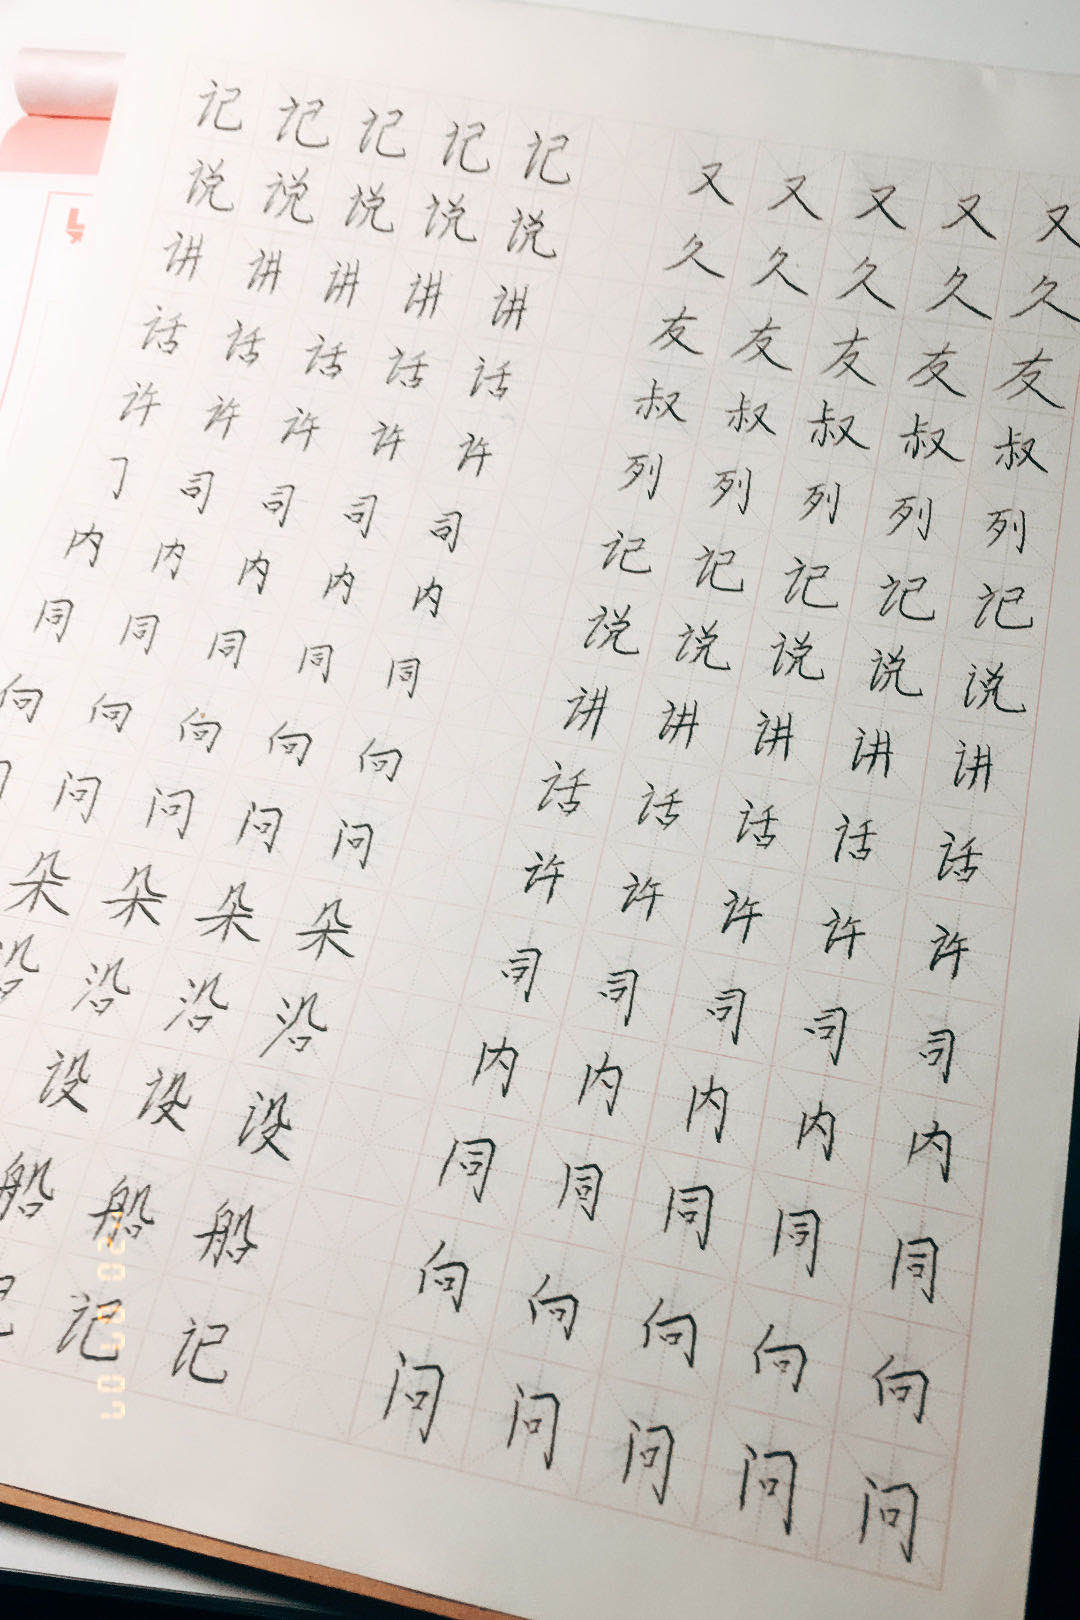 记记记记记
说说说说说
讲讲讲讲讲
话话话话话
许许许许许
司司司司
内内内内内
同同同同同
向向向向向
问问问问
朵朵朵朵
沿沿沿
设设设
船船船
记记
又又又又又
久久久久久
友友友友友
叔叔叔叔叔
列列列列列
记记记记记
说说说说说
讲讲讲讲讲
话话话话话
许许许许许
司司司司司
内内内内内
同同同同同
向向向向向
问问问问问